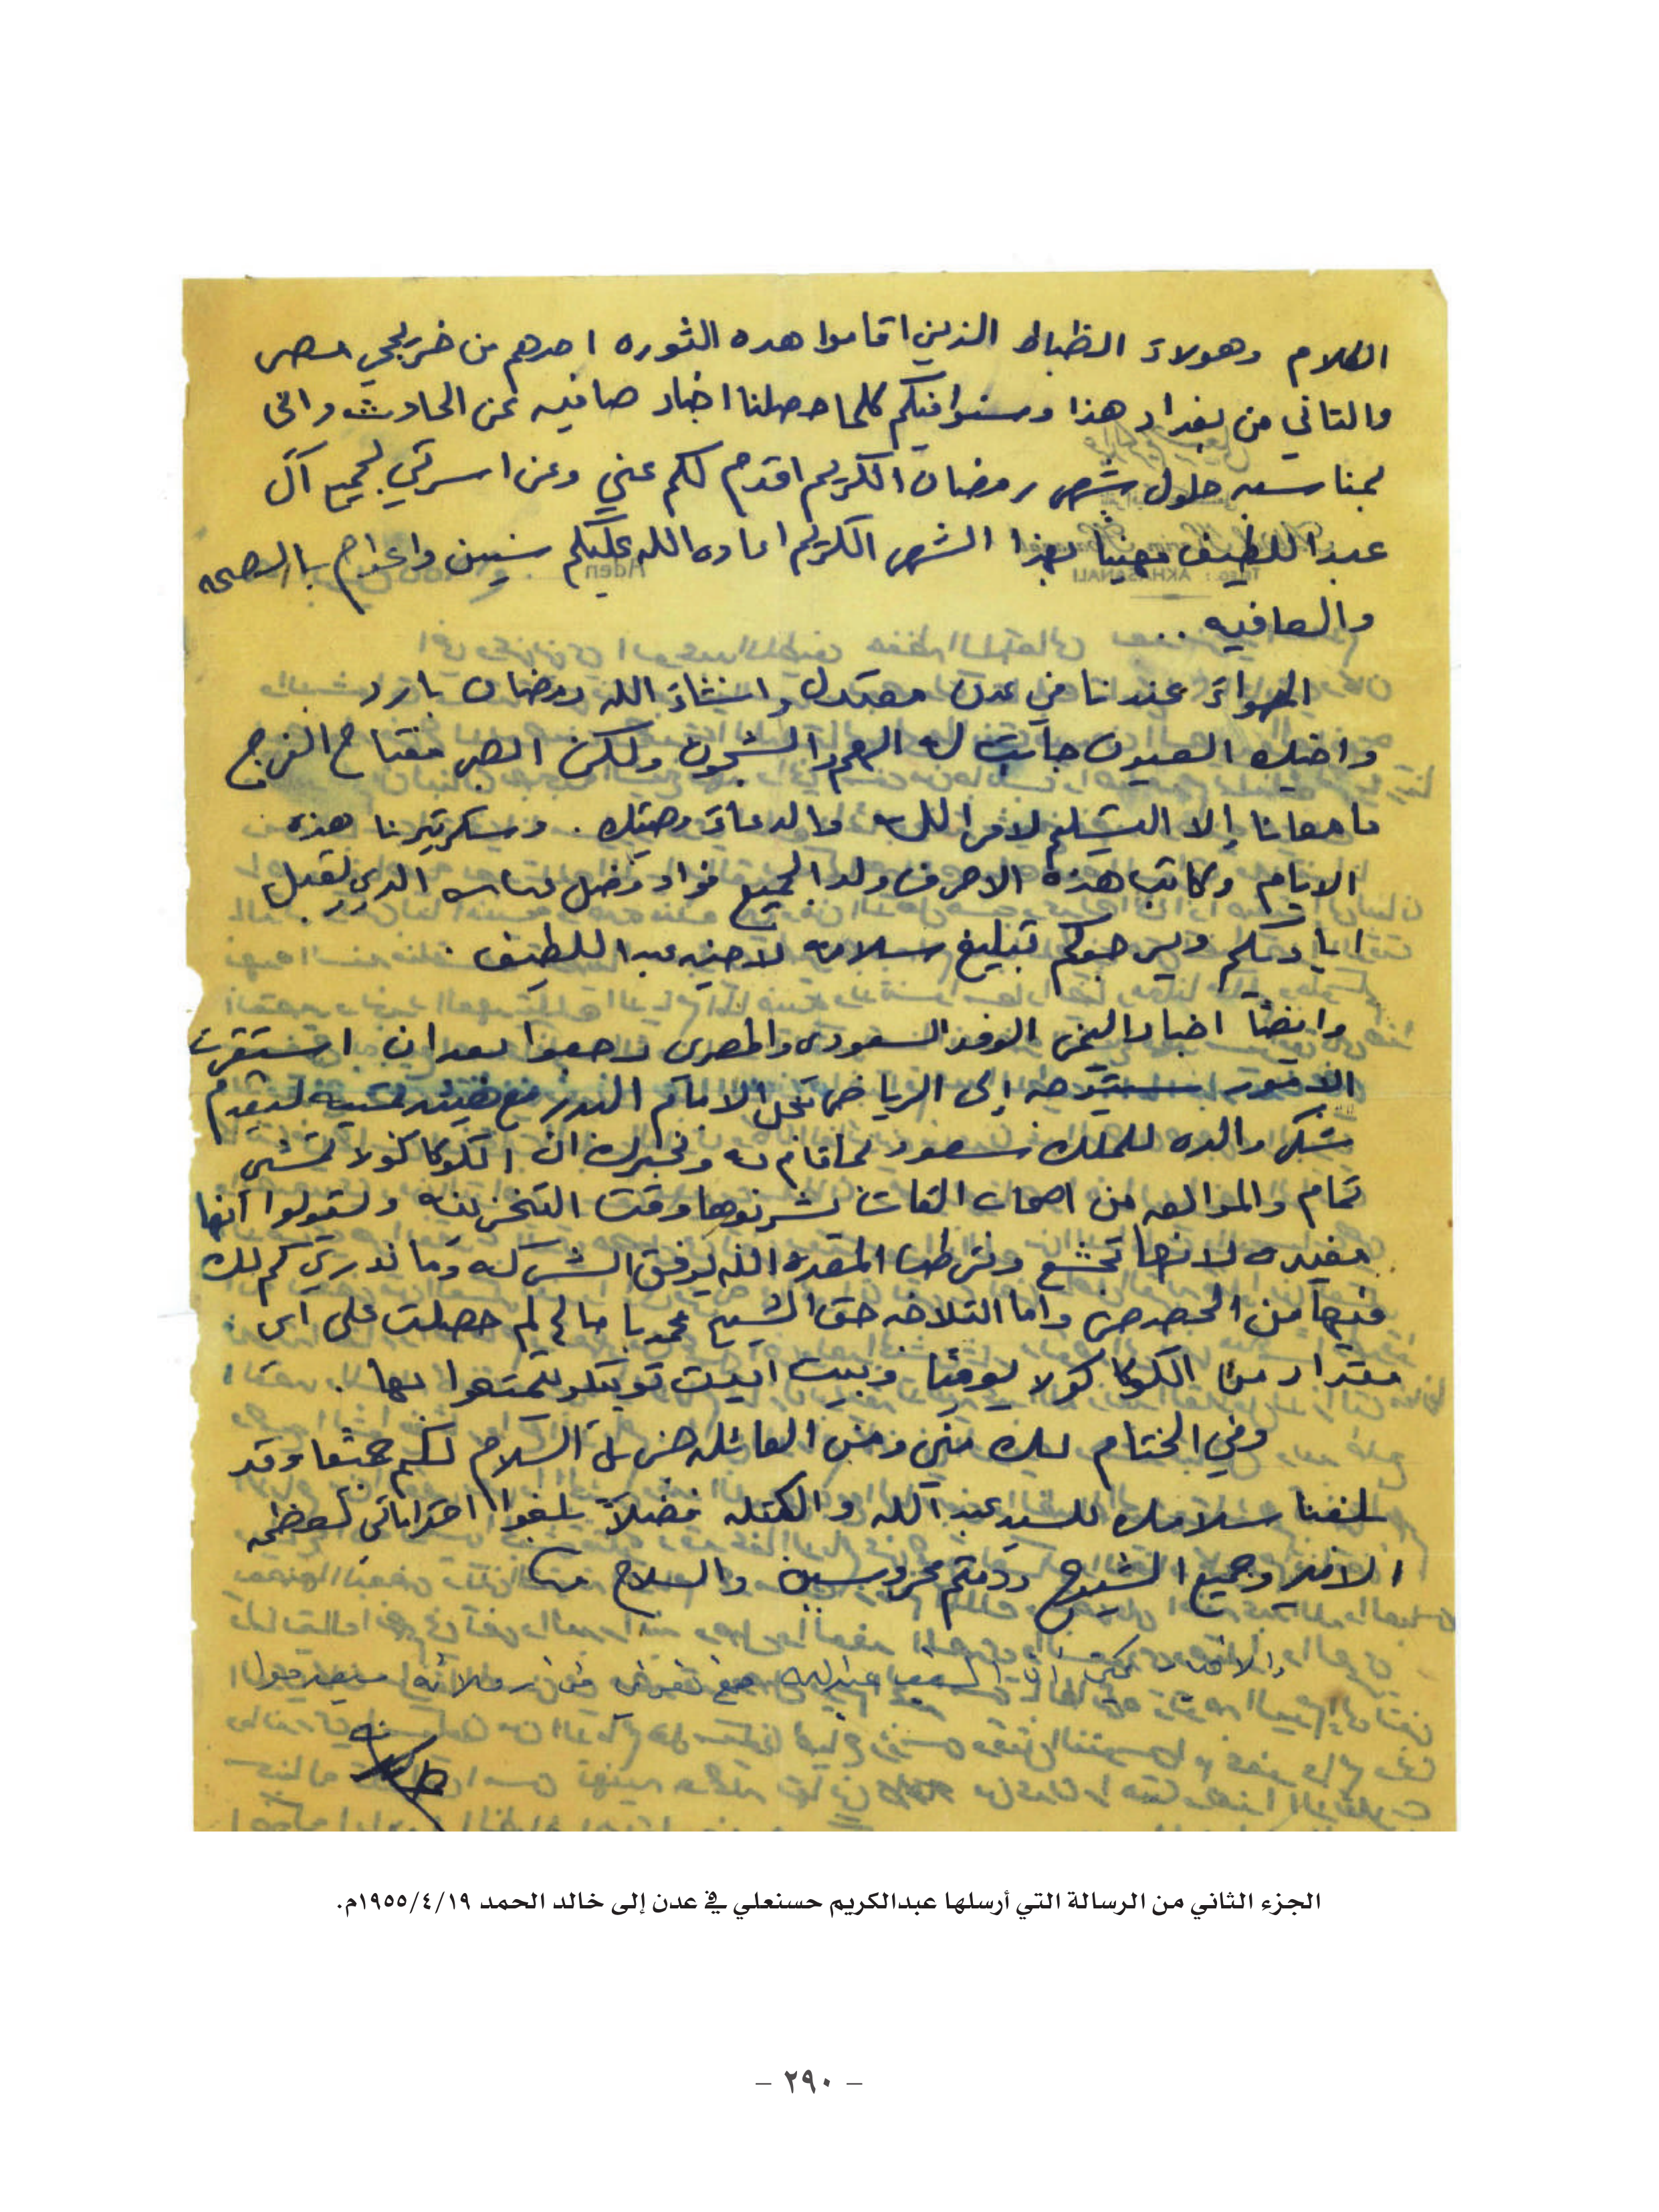 الكلام وهولاء الظباط الذين اقاموا هده الثوره احدهم من خريجي مصر
والتاني من بغداد هذا وسنوافيكم كلما حصلنا اخبار صافيه عن الحادث واني
بمناسبه حلول شهر رمضان الكريم اقدم لكم عني وعن اسرتي لجميع آل
عبد اللطيف مهنيا بهذا الشهر الكريم اعاده الله عليكم سنين واعوام بالصحه
والعافيه ..
الهواء عندنا في عدن معتدل وانشاء الله رمضان بارد
واخيك العيون جابت له الهم والشجون ولكن الصبر مفتاح الفرج
ما معانا إلا التسليم لامر الله والدعاء وصيتك . وسكرتيرنا هذه
الايام وكاتب هذه الاحرف ولد الجميع فواد فضل الدي يقبل
اياديكم ويرجوكم تبليغ سلامه لاخيه عبد اللطيف .
وايضاً اخبار اليمن الوفد السعودى والمصرى رجعوا بعد ان استقرت
الامور إلى الرياض نجل الامام البدر مع ليقدم
شكر والده للملك سعود لما قام به ونخبرك ان الكوكا كولا تمشي
تمام والموالعه من اصحاب القات يشربوها وقت التخزينه وليقولوا أنها
مفيده لانها تجشع المعده الله يوفق الشركه وما ندري كم لك
فيها من الحصص واما التلاجه حق الشيخ محمد با لم حصلت على اى
مقدار من الكوكا كولا يومياً وبيت ليتمتعوا بها .
وفي الختام لك مني ومن العائله جزيل السلام لكم جميعا وقد
بلغنا سلامك للسيد عبد الله والكتله فضلاً بلغوا احتراماتي لعظمه
الامير وجميع الشيوخ ودمتم محروسين والسلام
الجزء الثاني من الرسالة التي أرسلها عبدالكريم حسنعلي في عدن إلى خالد الحمد ١٩٥٥/٤/١٩م.
– ٢٩٠ –